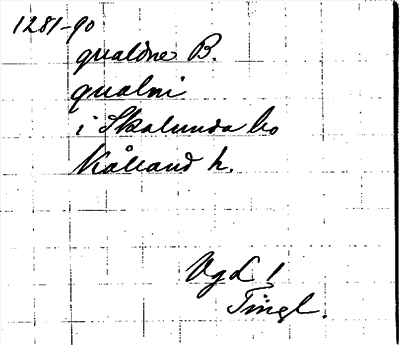 1281-90
qualdne B.
qualni
i Skalunda so
Kålland h.
Vgd 1
Tingl.